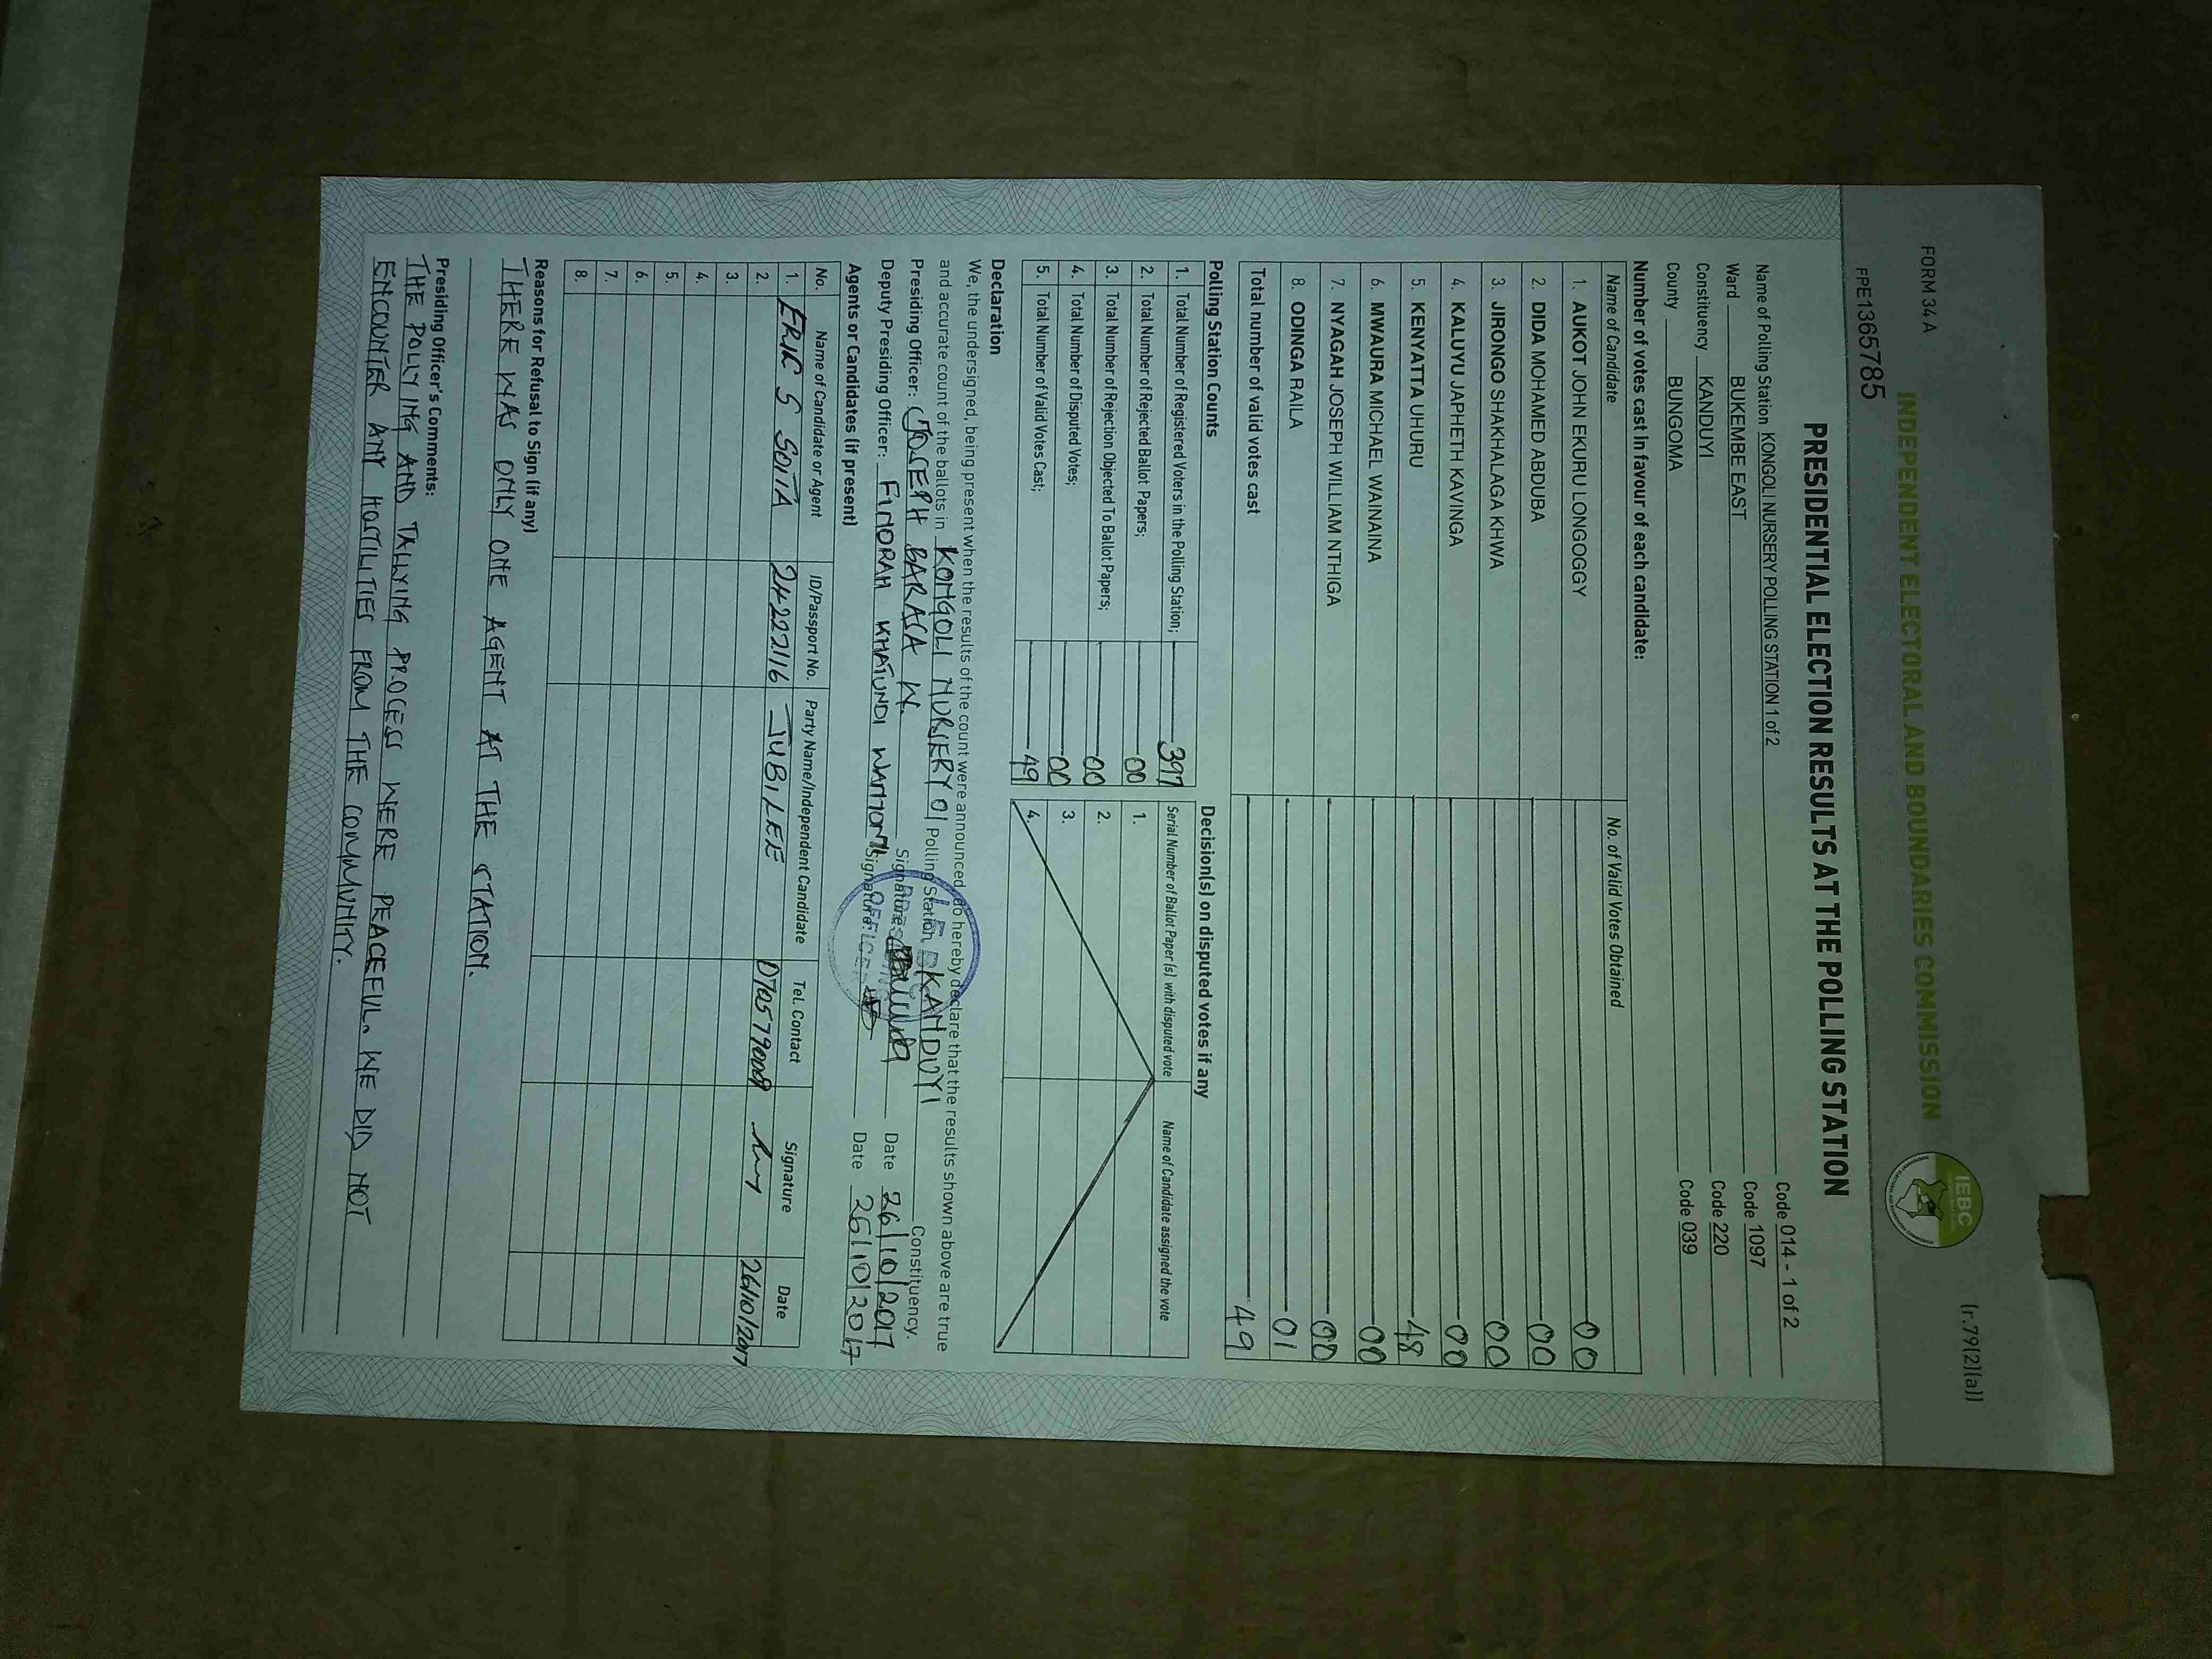 FORM 34 A
(r.79(2)(a))
INDEPENDENT ELECTORAL AND BOUNDARIES COMMISSION
IEBC
FPE1365785
PRESIDENTIAL ELECTION RESULTS AT THE POLLING STATION
Name of Polling Station KONGOLI NURSERY POLLING STATION 1 of 2 Code 014 - 1 of 2
Ward BUKEMBE EAST Code 1097
Constituency KANDUYI Code 220
County BUNGOMA Code 039
Number of votes cast in favour of each candidate:
Name of Candidate No. of Valid Votes Obtained
1. AUKOT JOHN EKURU LONGOGGY 00
2. DIDA MOHAMED ABDUBA 00
3. JIRONGO SHAKHALAGA KHWA 00
4. KALUYU JAPHETH KAVINGA 00
5. KENYATTA UHURU 48
6. MWAURA MICHAEL WAINAINA 00
7. NYAGAH JOSEPH WILLIAM NTHIGA 00
8. ODINGA RAILA 01
Total number of valid votes cast 49
Polling Station Counts
1. Total Number of Registered Voters in the Polling Station; 397
2. Total Number of Rejected Ballot Papers; 00
3. Total Number of Rejection Objected To Ballot Papers; 00
4. Total Number of Disputed Votes; 00
5. Total Number of Valid Votes Cast; 49
Decision(s) on disputed votes if any
Serial Number of Ballot Paper (s) with disputed vote Name of Candidate assigned the vote
1.
2.
3.
4.
Declaration
We, the undersigned, being present when the results of the count were announced, do hereby declare that the results shown above are true
and accurate count of the ballots in KONGOLI NURSERY 01 Polling Station KANDUYI Constituency.
Presiding Officer: JOSEPH BARASA W. Signature: Date 26/10/2017
Deputy Presiding Officer: FINDRAH KHATUNDI Signature: Date 26/10/2017
Agents or Candidates (if present)
No. Name of Candidate or Agent ID/Passport No. Party Name/Independent Candidate Tel. Contact Signature Date
1. ERIC S SOITA 24222116 JUBILEE 26/10/2017
2.
3.
4.
5.
6.
7.
8.
Reasons for Refusal to Sign (if any)
THERE WAS ONLY ONE AGENT AT THE STATION.
Presiding Officer's Comments:
THE POLLYING AND TALLYING PROCESS WERE PEACEFUL. WE DID NOT
ENCOUNTER ANY HOSTILITIES FROM THE COMMUNITY.